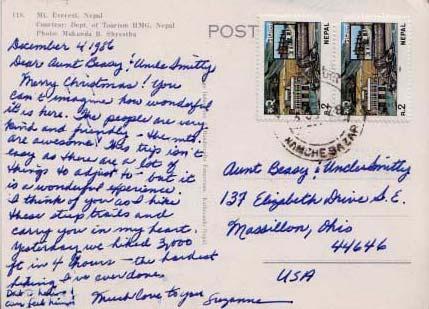 118. Mt. Everest, Nepal
Courtesy: Dept. of Tourism HMG. Nepal
Photo: Mukunda B. Shrestha
December 4, 1986
Dear Aunt Beasy & Uncle Smitty
Merry Christmas! You
can't imagine how wonderful
it is here. The people are very
kind and friendly - the mts.
are awesome! This trip isn't
easy as there are a lot of
things to adjust to - but it
is a wonderful experience.
I think of you as I hike
these steep trails and
carry you in my heart.
Yesterday we hiked 3,000
ft in 4 hours - the hardest
hiking I've ever done.
Much love to you Suzanne
POST
NEPAL
रु.2
NEPAL
रु.2
NAMCHE BAZAR
Aunt Beasy & Uncle Smitty
137 Elizabeth Drive S.E.
Massillon, Ohio
44646
USA